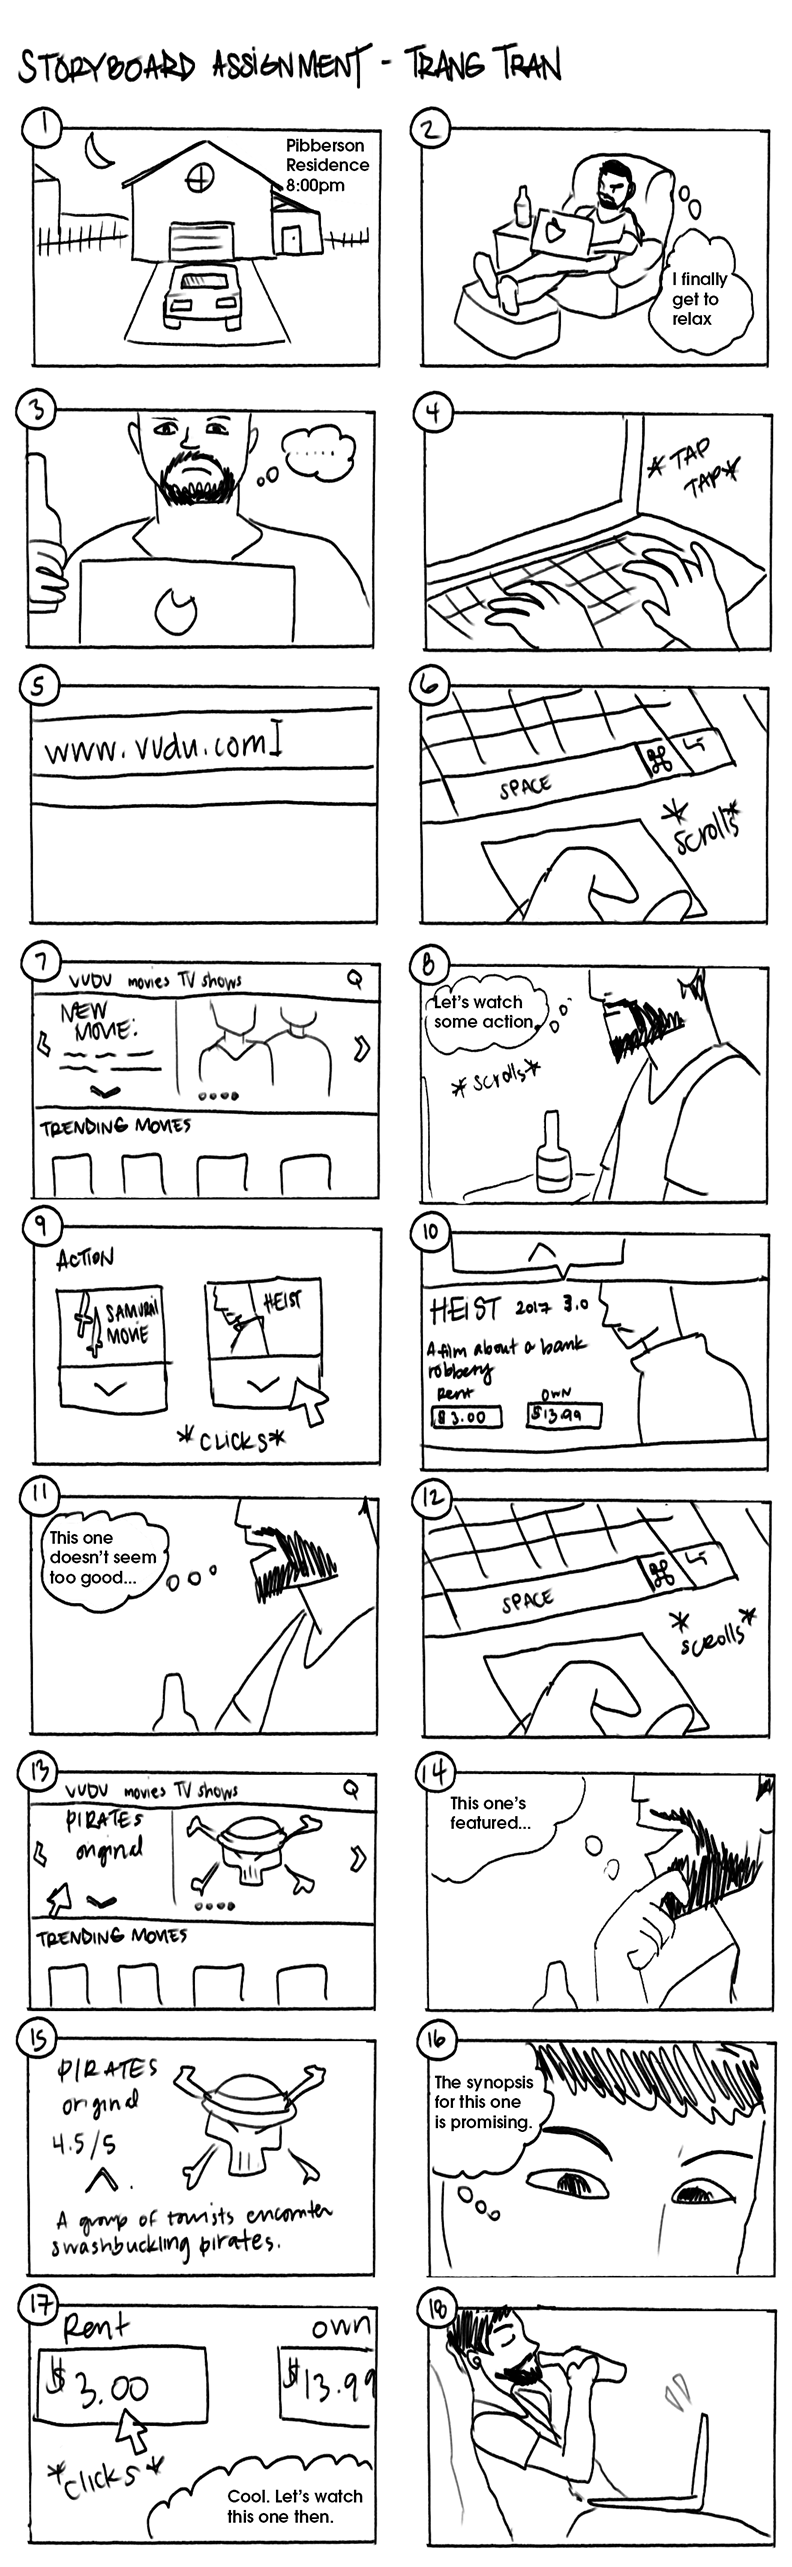 STORYBOARD ASSIGNMENT - TRANG TRAN
1
Pibberson
Residence
8:00pm
2
I finally
get to
relax
3
......
4
*TAP
TAP*
5
www.vudu.com
6
SPACE
⌘
*scrolls*
7
VUDU movies TV shows
NEW
MOVIE:
TRENDING MOVIES
8
Let's watch
some action.
*scrolls*
9
ACTION
SAMURAI
MOVIE
HEIST
*CLICKS*
10
HEIST 2017 3.0
A film about a bank
robbery
Rent
OWN
$3.00
$13.99
11
This one
doesn't seem
too good...
12
SPACE
⌘
*scrolls*
13
VUDU movies TV shows
PIRATES
original
TRENDING MOVIES
14
This one's
featured...
15
PIRATES
original
4.5/5
A group of tourists encounter
swashbuckling pirates.
16
The synopsis
for this one
is promising.
17
Rent
own
$3.00
$13.99
*clicks*
Cool. Let's watch
this one then.
18